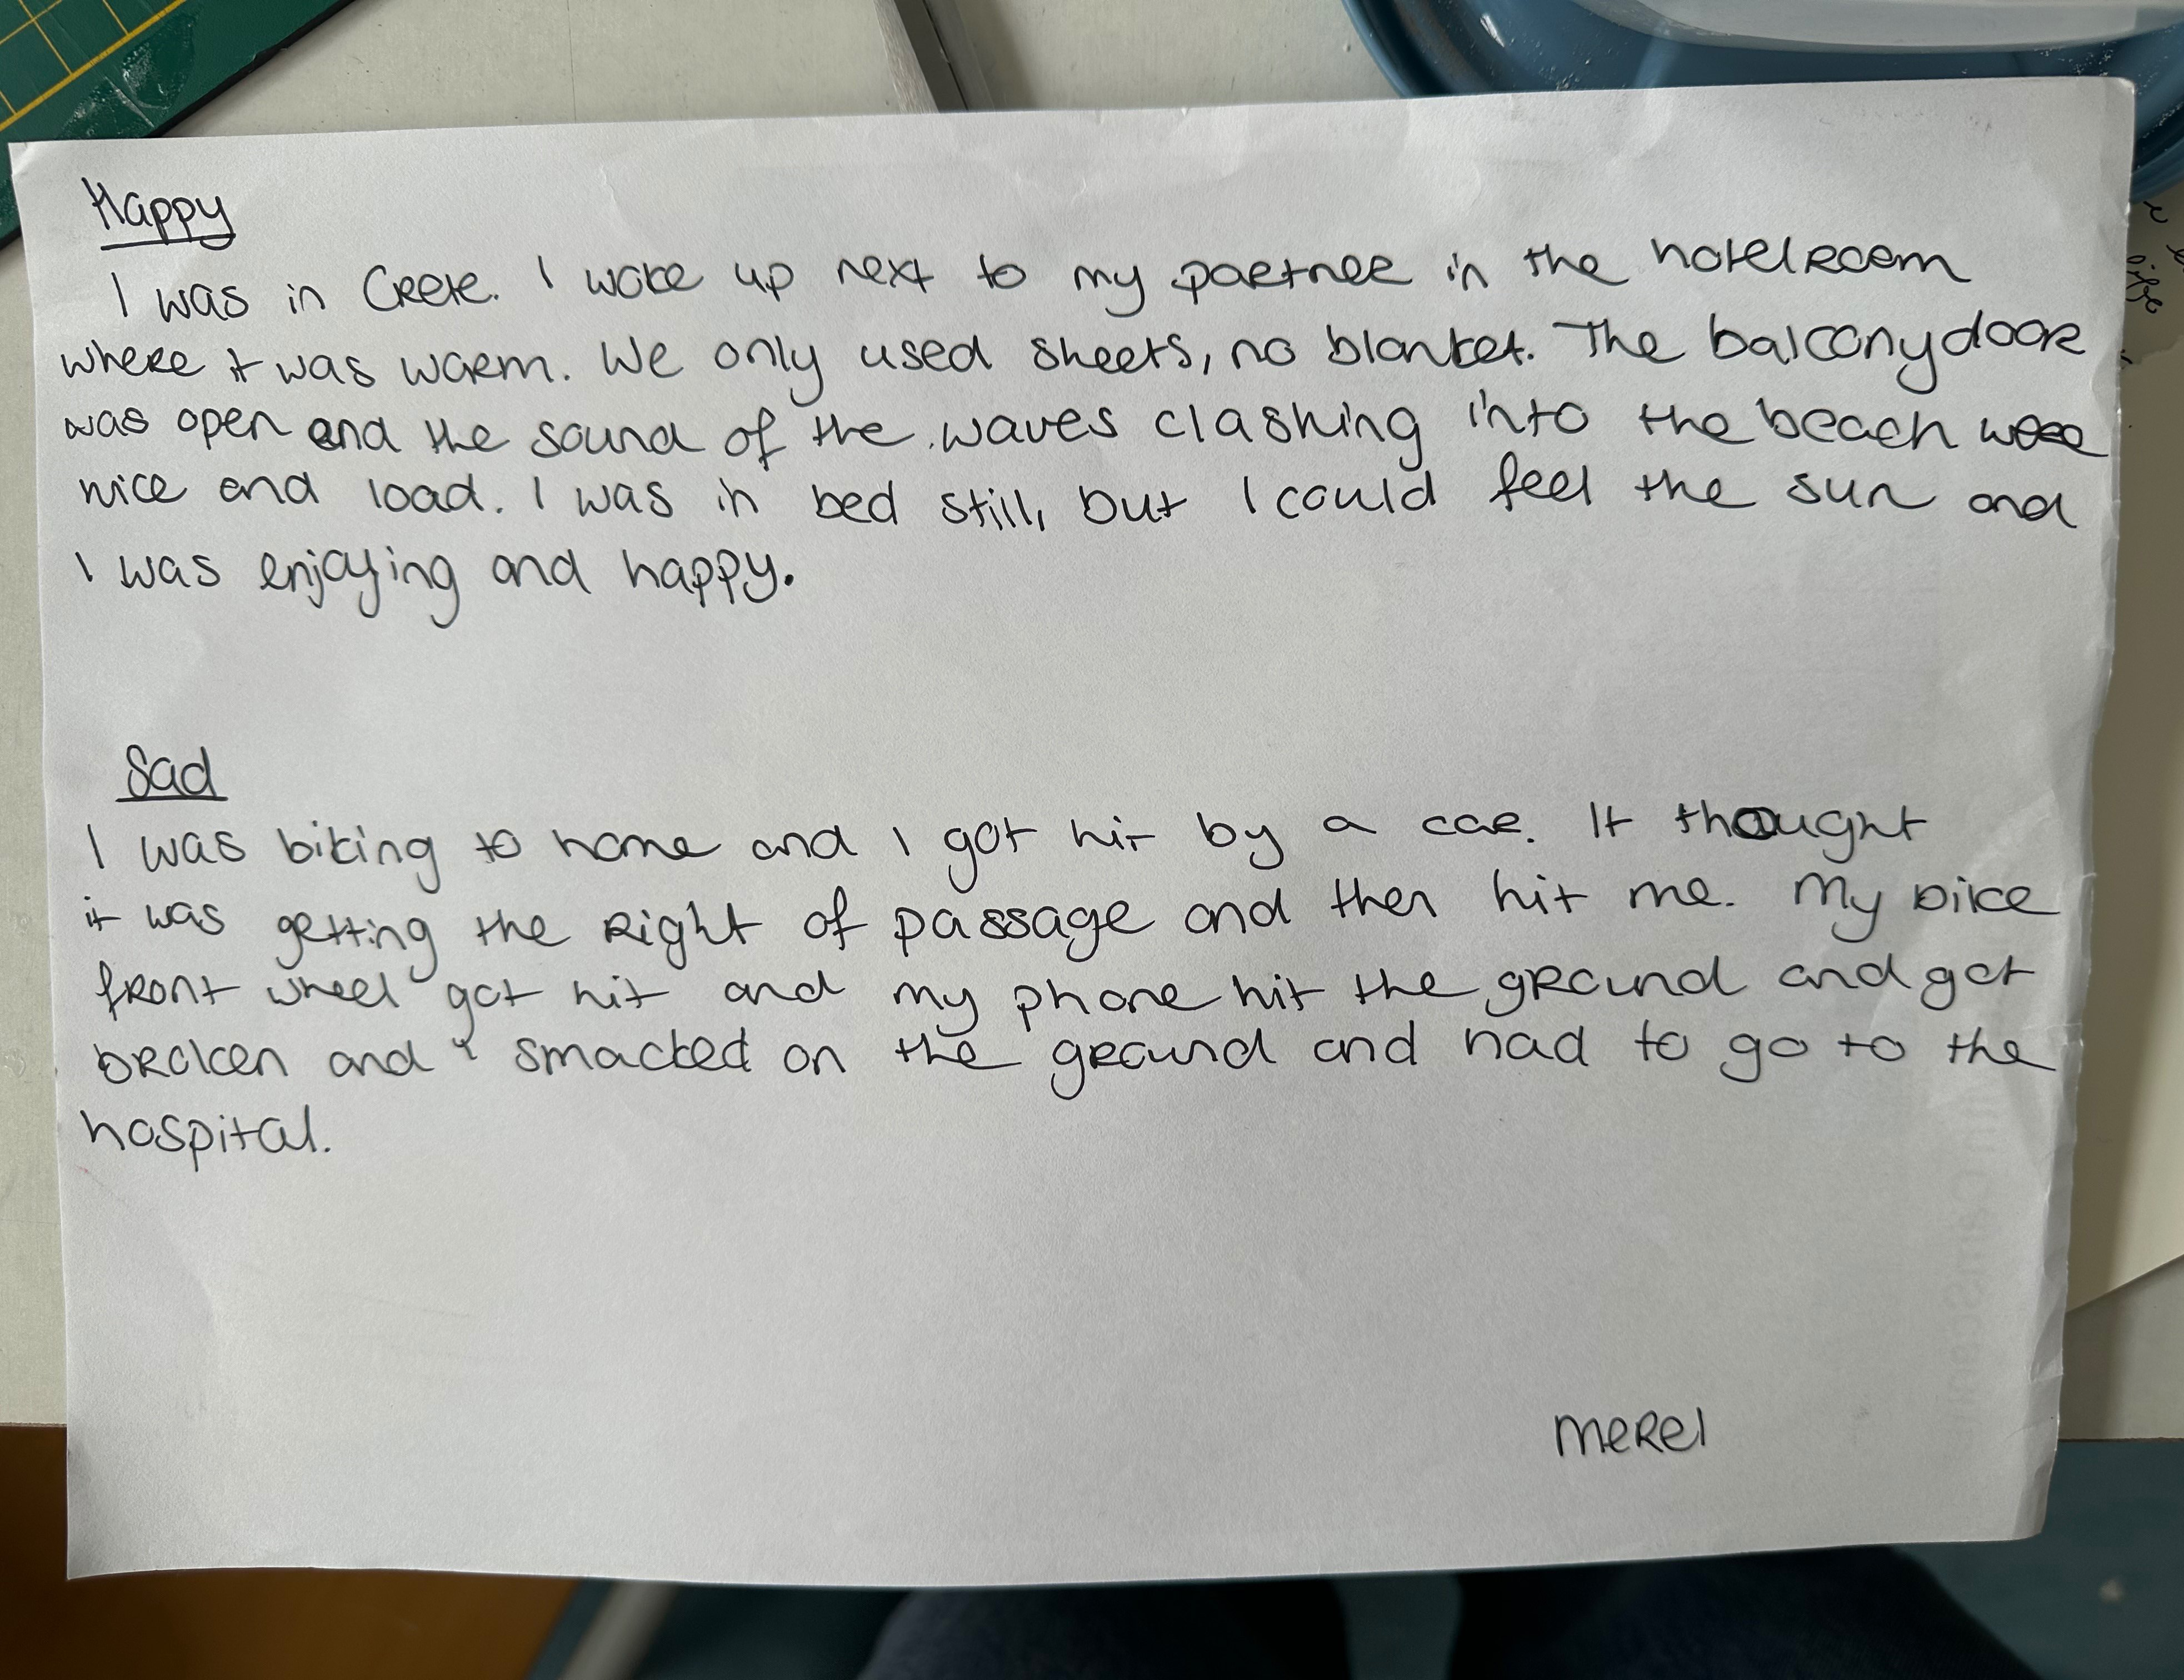 Happy
I was in Crete. I woke up next to my partner in the hotelroom
where it was warm. We only used sheets, no blanket. The balconydoor
was open and the sound of the waves clashing into the beach
nice and load. I was in bed still, but I could feel the sun and
I was enjoying and happy.
Sad
I was biking to home and I got hit by a car. It thought
it was getting the right of passage and then hit me. My bike
front wheel got hit and my phone hit the ground and got
broken and I smacked on the ground and had to go to the
hospital.
Merel